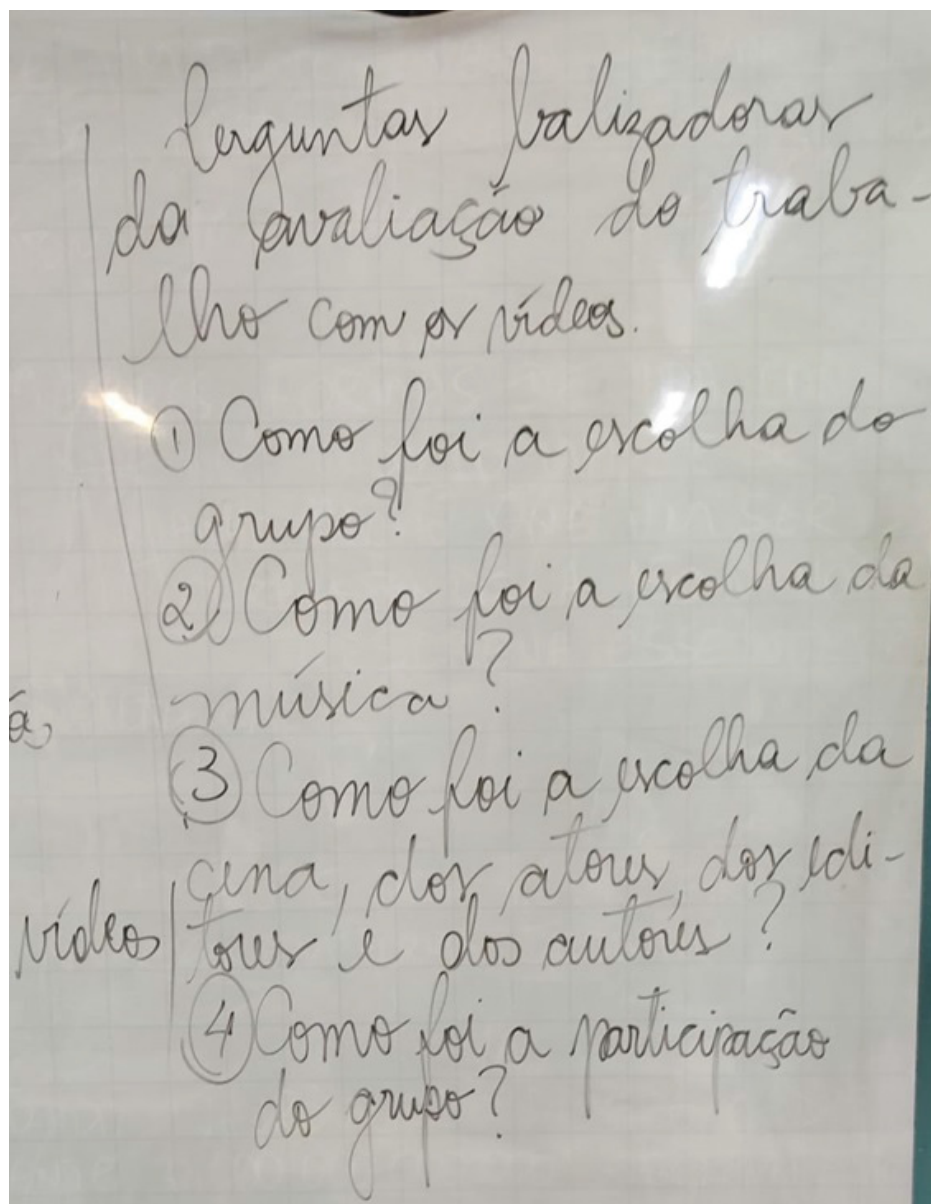 Perguntas balizadoras
da avaliação do traba-
lho com os vídeos.
① Como foi a escolha do
grupo?
② Como foi a escolha da
música?
③ Como foi a escolha da
cena, dos atores, dos edi-
tores e dos autores?
④ Como foi a participação
do grupo?
vídeos